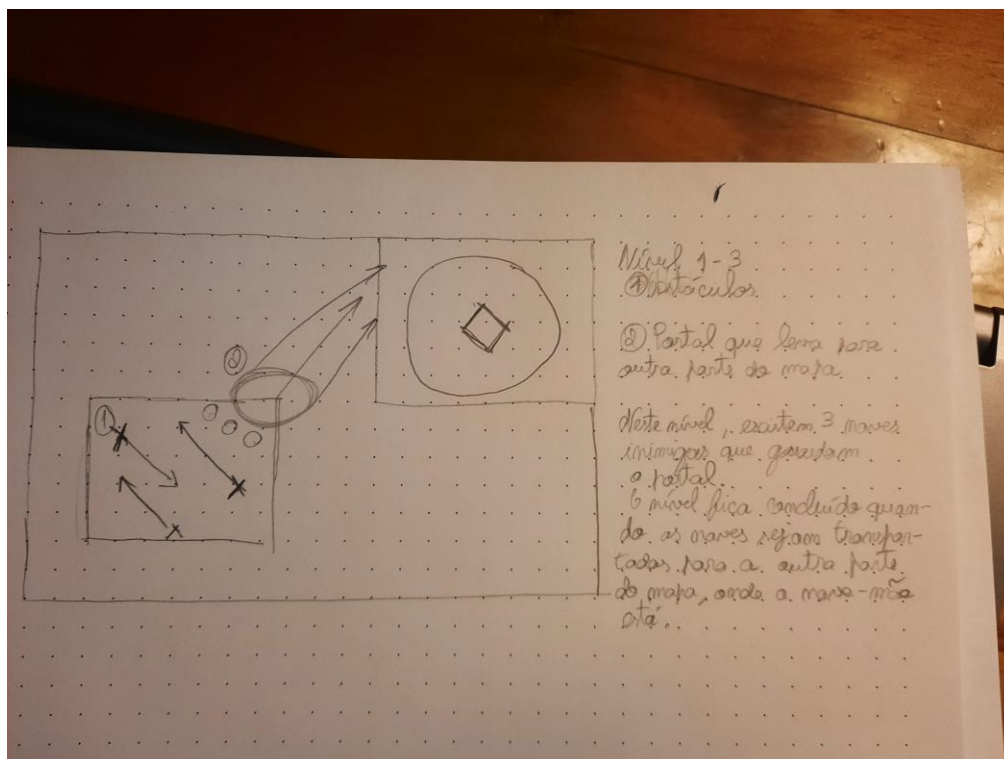 Nível 1-3
① Obstáculos
② Portal que leva para
outra parte do mapa
Neste nível, existem 3 naves
inimigas que guardam
o portal.
O nível fica concluído quan-
do as naves sejam transpor-
tadas para a outra parte
do mapa, onde a nave-mãe
está.
②
①